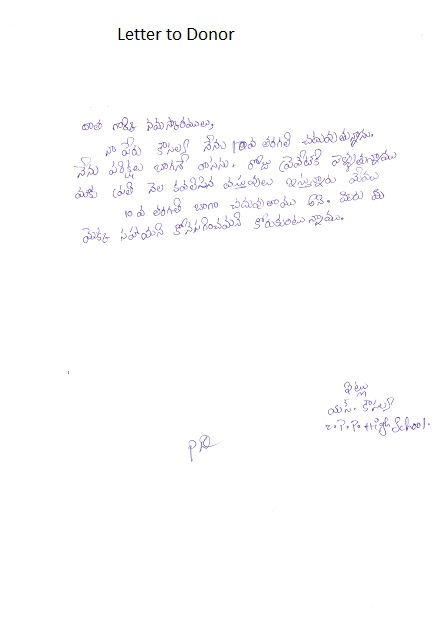 Letter to Donor
దాత గార్కి నమస్కారములు,
నా పేరు కౌసల్య నేను 10వ తరగతి చదువుతున్నాను.
నేను పరీక్షలు బాగానే రాసాను. రోజు ప్రైవేటుకి వెళ్ళుతున్నాము
మాకు ప్రతి నెల కావలసిన వస్తువులు ఇస్తున్నారు మేము
10 వ తరగతి బాగా చదువుతాము అని. మీరు మీ
యొక్క సహాయని కోనసాగించమని కోరుకుంటున్నాము.
ఇట్లు
యస్. కౌసల్య
Z.P.P. High School.